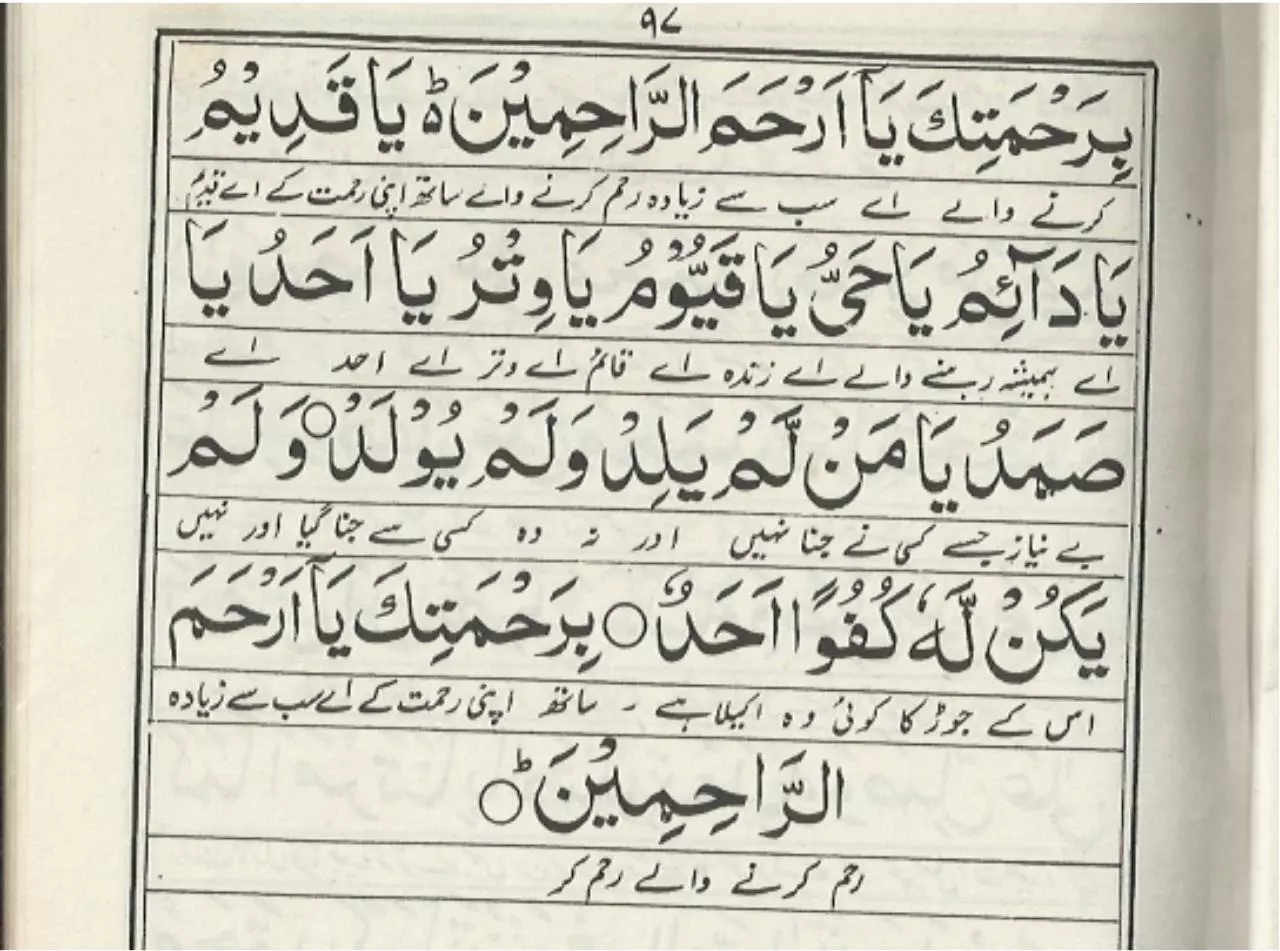 ۹۸
بِرَحْمَتِكَ يَآ اَرْحَمَ الرَّاحِمِيْنَ ؕ يَا قَدِيْمُ
کرنے والے اے سب سے زیادہ رحم کرنے والے ساتھ اپنی رحمت کے اے قدیم
يَا دَآئِمُ يَا حَيُّ يَا قَيُّوْمُ يَا وِتْرُ يَا اَحَدُ يَا
اے ہمیشہ رہنے والے اے زندہ اے قائم اے وتر اے احد اے
صَمَدُ يَا مَنْ لَّمْ يَلِدْ وَلَمْ يُوْلَدْ ○ وَلَمْ
بے نیاز جسے کسی نے جنا نہیں اور نہ وہ کسی سے جنا گیا اور نہیں
يَكُنْ لَّهٗ كُفُوًا اَحَدٌ ○ بِرَحْمَتِكَ يَآ اَرْحَمَ
اس کے جوڑ کا کوئی وہ اکیلا ہے ۔ ساتھ اپنی رحمت کے اے سب سے زیادہ
الرَّاحِمِيْنَ ○ؕ
رحم کرنے والے رحم کر